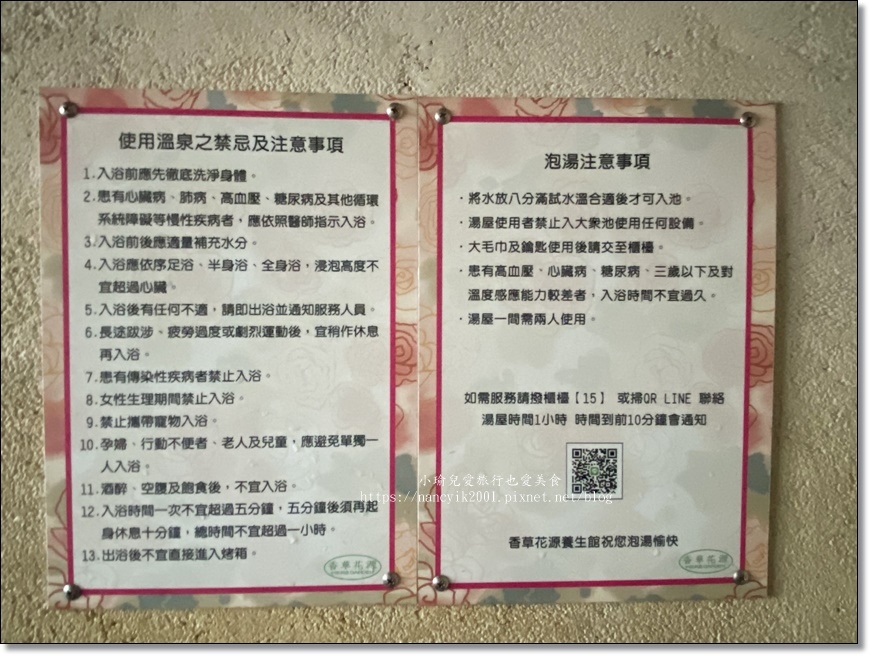 使用溫泉之禁忌及注意事項
1.入浴前應先徹底洗淨身體。
2.患有心臟病、肺病、高血壓、糖尿病及其他循環
系統障礙等慢性疾病者,應依照醫師指示入浴。
3.入浴前後應適量補充水分。
4.入浴應依序足浴、半身浴、全身浴,浸泡高度不
宜超過心臟。
5.入浴後有任何不適,請即出浴並通知服務人員。
6.長途跋涉、疲勞過度或劇烈運動後,宜稍作休息
再入浴。
7.患有傳染性疾病者禁止入浴。
8.女性生理期間禁止入浴。
9.禁止攜帶寵物入浴。
10.孕婦、行動不便者、老人及兒童,應避免單獨一
人入浴。
11.酒醉、空腹及飽食後,不宜入浴。
12.入浴時間一次不宜超過五分鐘,五分鐘後須再起
身休息十分鐘,總時間不宜超過一小時。
13.出浴後不宜直接進入烤箱。
香草花源
泡湯注意事項
·將水放八分滿試水溫合適後才可入池。
·湯屋使用者禁止入大眾池使用任何設備。
·大毛巾及鑰匙使用後請交至櫃檯。
·患有高血壓、心臟病、糖尿病、三歲以下及對
溫度感應能力較差者,入浴時間不宜過久。
·湯屋一間需兩人使用。
如需服務請撥櫃檯【15】 或掃QR LINE 聯絡
湯屋時間1小時 時間到前10分鐘會通知
小瑜兒愛旅行也愛美食
https://nancyik2001.pixnet.net/blog
香草花源養生館祝您泡湯愉快
香草花源